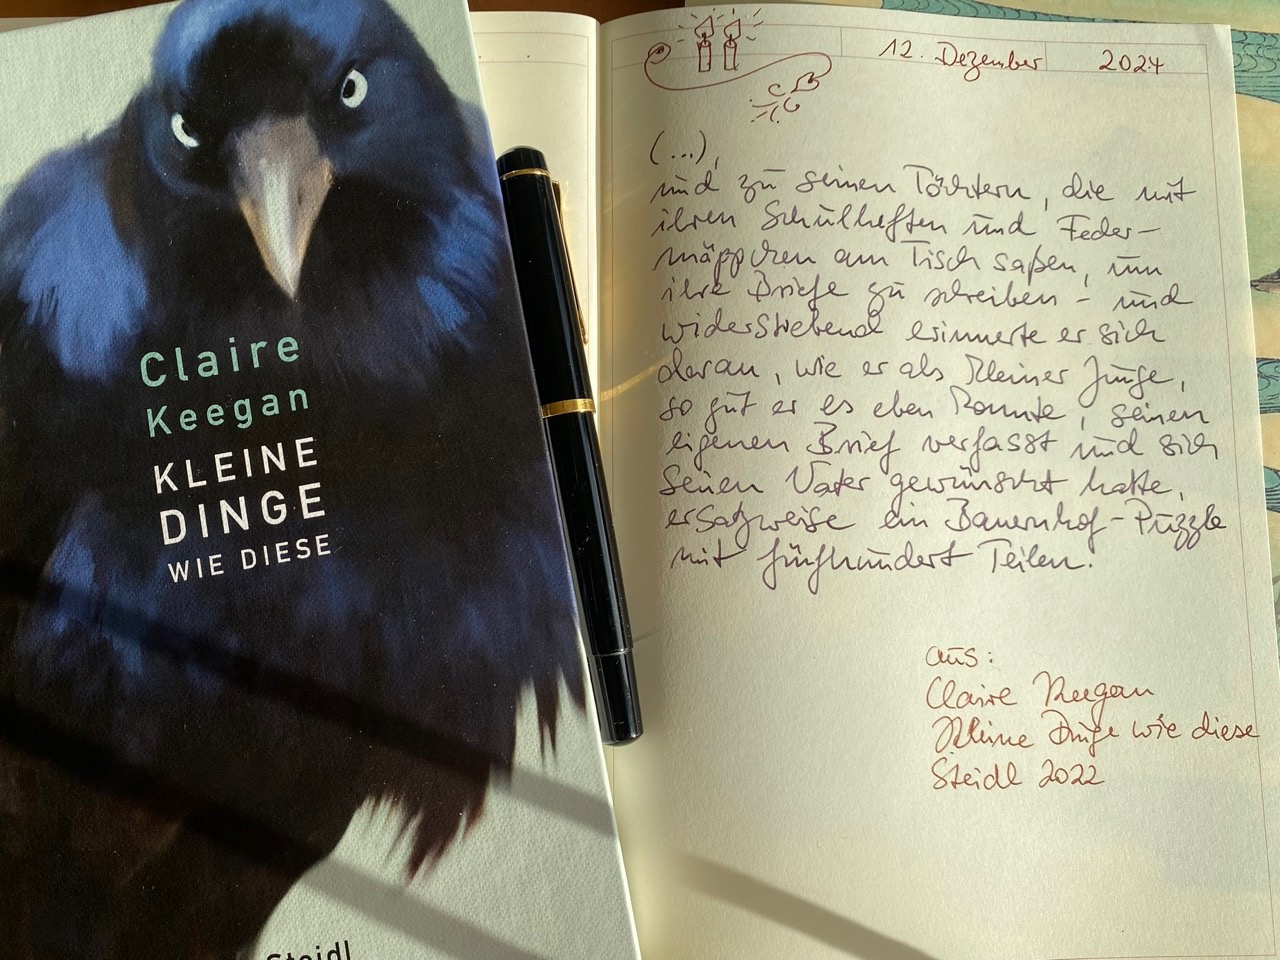 Claire
Keegan
KLEINE
DINGE
WIE DIESE
Steidl
12. Dezember 2024
(...),
und zu seinen Töchtern, die mit
ihren Schulheften und Feder-
mäppchen am Tisch saßen, um
ihre Briefe zu schreiben - und
widerstrebend erinnerte er sich
daran, wie er als kleiner Junge,
so gut er es eben konnte, seinen
eigenen Brief verfasst und sich
seinen Vater gewünscht hatte,
ersatzweise ein Bauernhof-Puzzle
mit fünfhundert Teilen.
aus:
Claire Keegan
Kleine Dinge wie diese
Steidl 2022